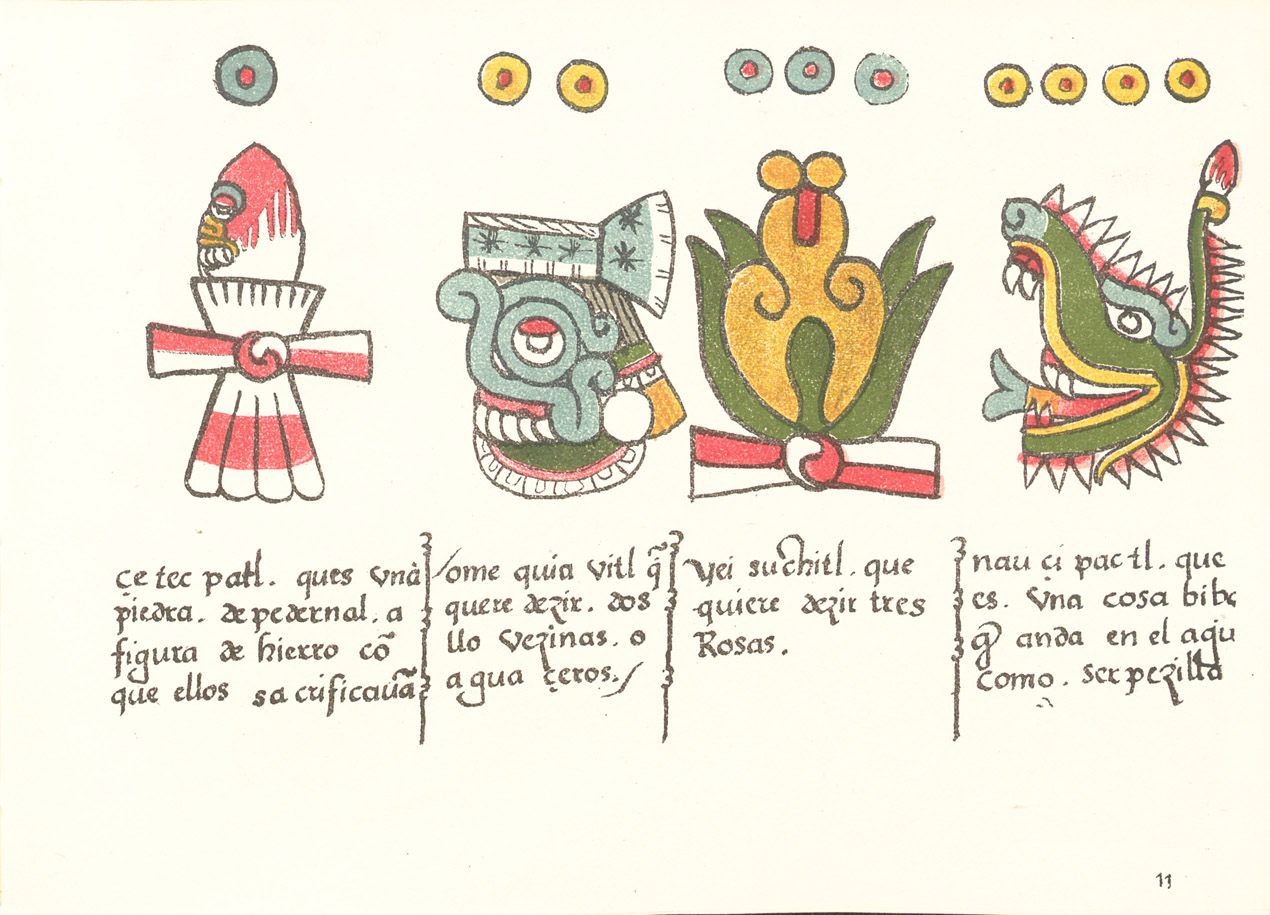 çe tec patl. ques vna
piedra. de pedernal. a
figura de hierro cō
que ellos sacrificauā
ome quia vitl q̃
quere dezir. dos
llo vezinas. o
agua çeros./
yei suchitl. que
quiere dezir tres
Rosas.
nau çi pactl. que
es. vna cosa bibe
q̃ anda en el agu
como. serpezilla
11